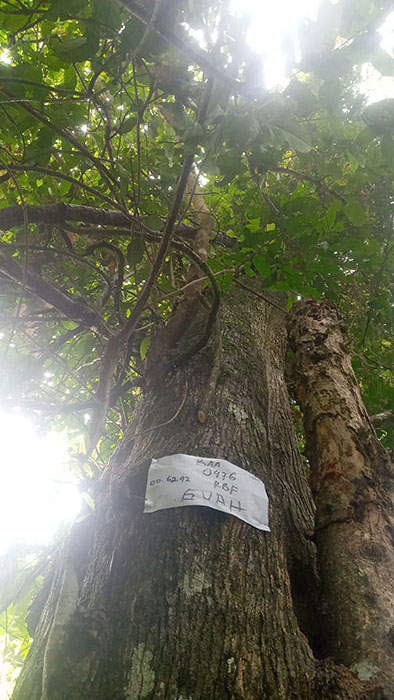 KAA
0476
00.62.92 RBF
GUAH